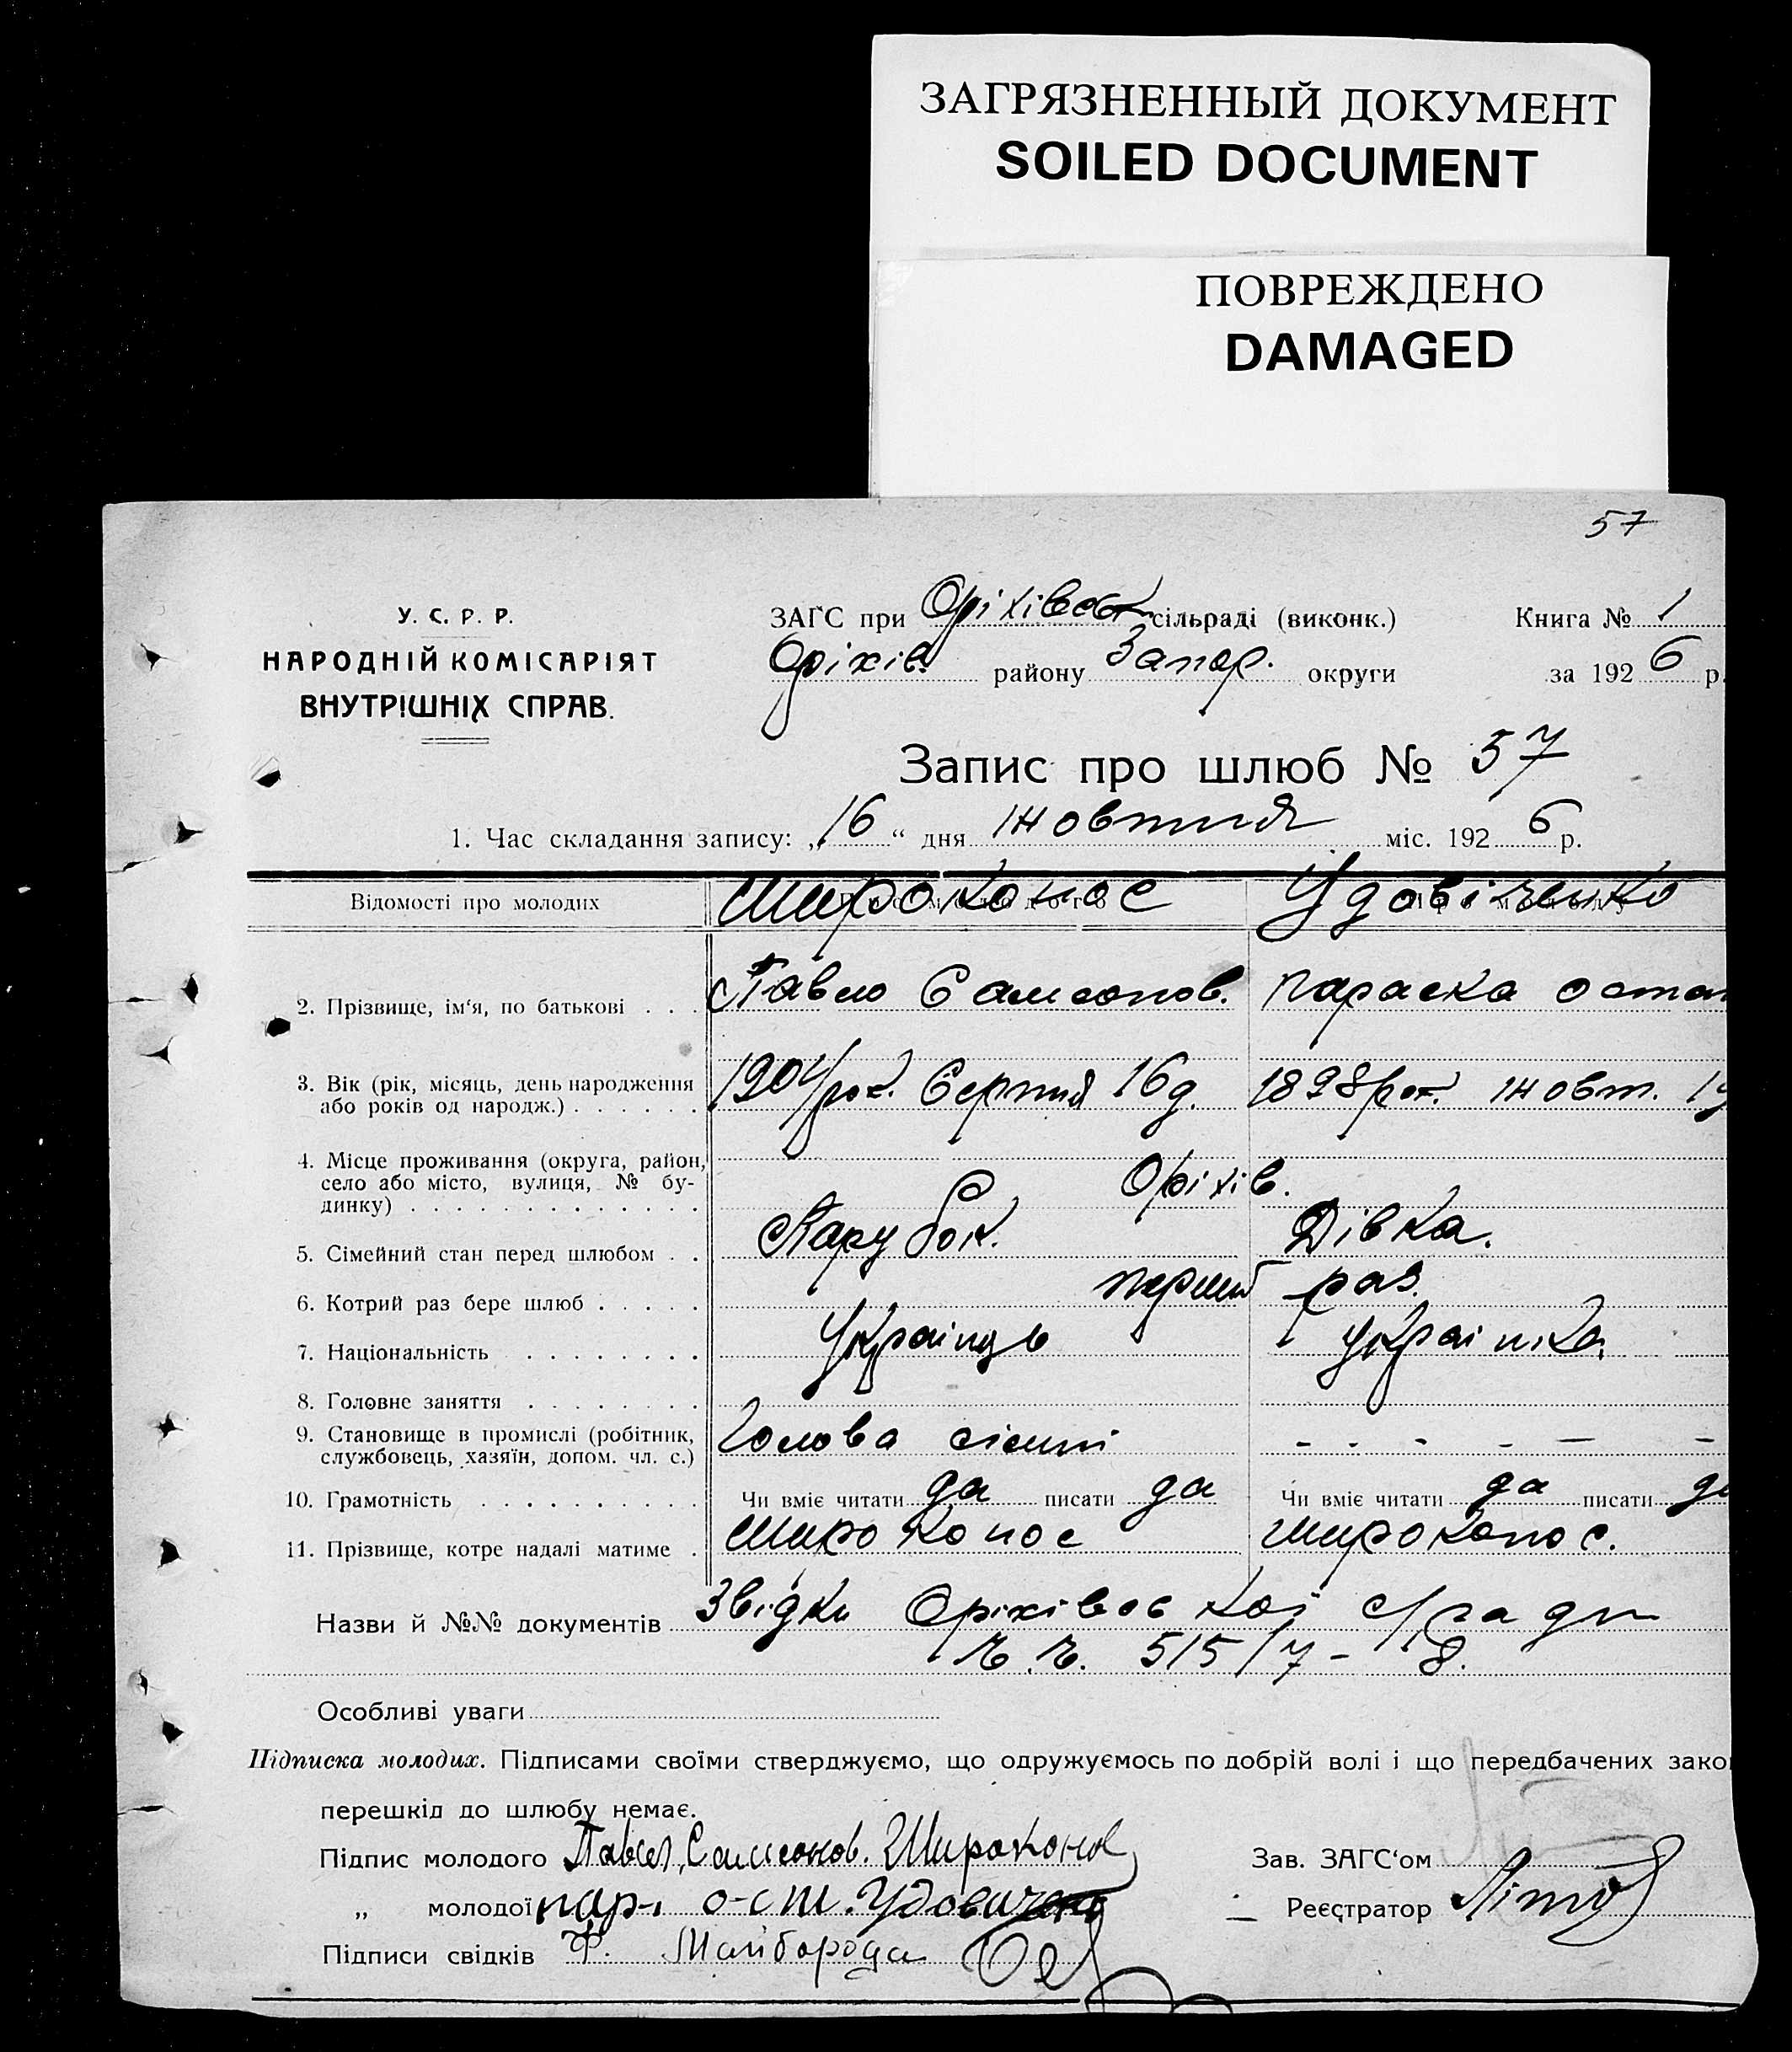 ЗАГРЯЗНЕННЫЙ ДОКУМЕНТ
SOILED DOCUMENT
ПОВРЕЖДЕНО
DAMAGED
57
У. С. Р. Р.
НАРОДНІЙ КОМІСАРІЯТ
ВНУТРІШНІХ СПРАВ.
ЗАГС при Оріхівськ сільраді (виконк.) Книга № 1
Оріхів. району Запор. округи за 1926 р.
Запис про шлюб № 57
1. Час складання запису: „16“ дня жовтня міс. 1926 р.
Відомості про молодих Широконос Удовіченко
2. Прізвище, ім‘я, по батькові . . . Павло Самсонов. Параска Остап
3. Вік (рік, місяць, день народження 1904 рок. Серпня 16 д. 1898 рок. жовт. 1
або років од народж.) . . . . . .
4. Місце проживання (округа, район,
село або місто, вулиця, № бу- Оріхів.
динку) . . . . . . . . . . . . .
5. Сімейний стан перед шлюбом . . Парубок. Дівка.
6. Котрий раз бере шлюб . . . . . перший раз.
7. Національність . . . . . . . . Українць Українка.
8. Головне заняття . . . . . . . .
9. Становище в промислі (робітник, Голова сімті - - - - - -
службовець, хазяїн, допом. чл. с.)
10. Грамотність . . . . . . . . . . Чи вміє читати да писати да Чи вміє читати да писати да
11. Прізвище, котре надалі матиме . Широконос Широконос.
Назви й №№ документів Звідки Оріхівської с/ради
ч.ч. 515/7 - 8.
Особливі уваги
Підписка молодих. Підписами своїми стверджуємо, що одружуємось по добрій волі і що передбачених зако
перешкід до шлюбу немає.
Підпис молодого Павел, Самсонов. Широконос Зав. ЗАГС‘ом
„ молодої пар. ост. Удовиченко Реєстратор
Підписи свідків Ф. Майборода